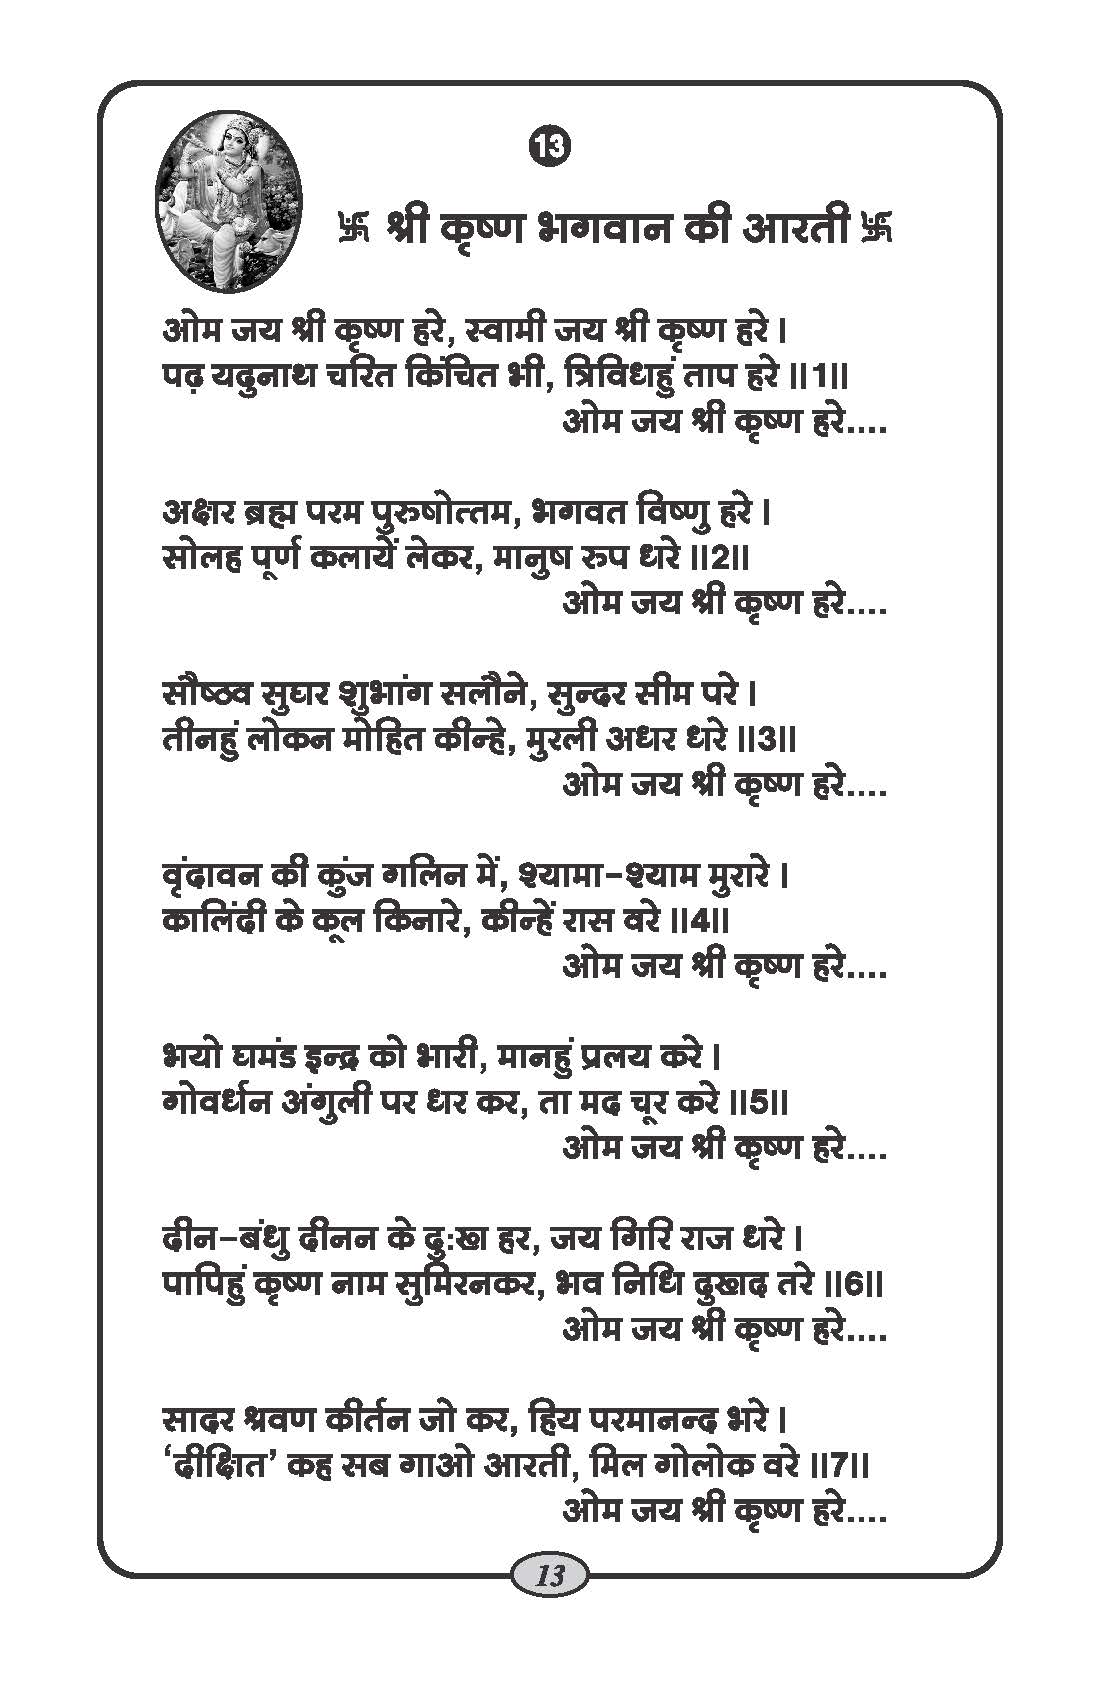 13
卐 श्री कृष्ण भगवान की आरती 卐
ओम जय श्री कृष्ण हरे, स्वामी जय श्री कृष्ण हरे ।
पढ़ यदुनाथ चरित किंचित भी, त्रिविधहुं ताप हरे ॥1॥
ओम जय श्री कृष्ण हरे....
अक्षर ब्रह्म परम पुरुषोत्तम, भगवत विष्णु हरे ।
सोलह पूर्ण कलायें लेकर, मानुष रुप धरे ॥2॥
ओम जय श्री कृष्ण हरे....
सौष्ठव सुघर शुभांग सलौने, सुन्दर सीम परे ।
तीनहुं लोकन मोहित कीन्हे, मुरली अधर धरे ॥3॥
ओम जय श्री कृष्ण हरे....
वृंदावन की कुंज गलिन में, श्यामा-श्याम मुरारे ।
कालिंदी के कूल किनारे, कीन्हें रास वरे ॥4॥
ओम जय श्री कृष्ण हरे....
भयो घमंड इन्द्र को भारी, मानहुं प्रलय करे ।
गोवर्धन अंगुली पर धर कर, ता मद चूर करे ॥5॥
ओम जय श्री कृष्ण हरे....
दीन-बंधु दीनन के दुःख हर, जय गिरि राज धरे ।
पापिहुं कृष्ण नाम सुमिरनकर, भव निधि दुखद तरे ॥6॥
ओम जय श्री कृष्ण हरे....
सादर श्रवण कीर्तन जो कर, हिय परमानन्द भरे ।
‘दीक्षित’ कह सब गाओ आरती, मिल गोलोक वरे ॥7॥
ओम जय श्री कृष्ण हरे....
13